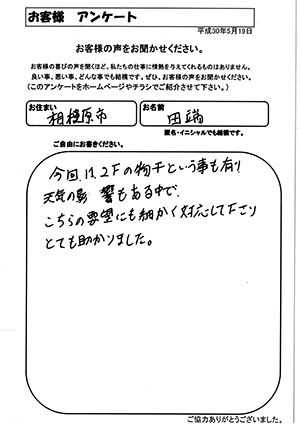 お客様 アンケート
平成30年5月19日
お客様の声をお聞かせください。
お客様の喜びの声を聞くほど、私たちの仕事に情熱を与えてくれるものはありません。
良い事、悪い事、どんな事でも結構です。ぜひ、お客様の声をお聞かせください。
(このアンケートをホームページやチラシでご紹介させて下さい。)
お住まい
相模原市
お名前
田端
匿名・イニシャルでも結構です。
ご自由にお書きください。
今回は、2Fの物干という事も有り
天気の影響もある中で、
こちらの要望にも細かく対応して下さり
とても助かりました。
ご協力ありがとうございました。